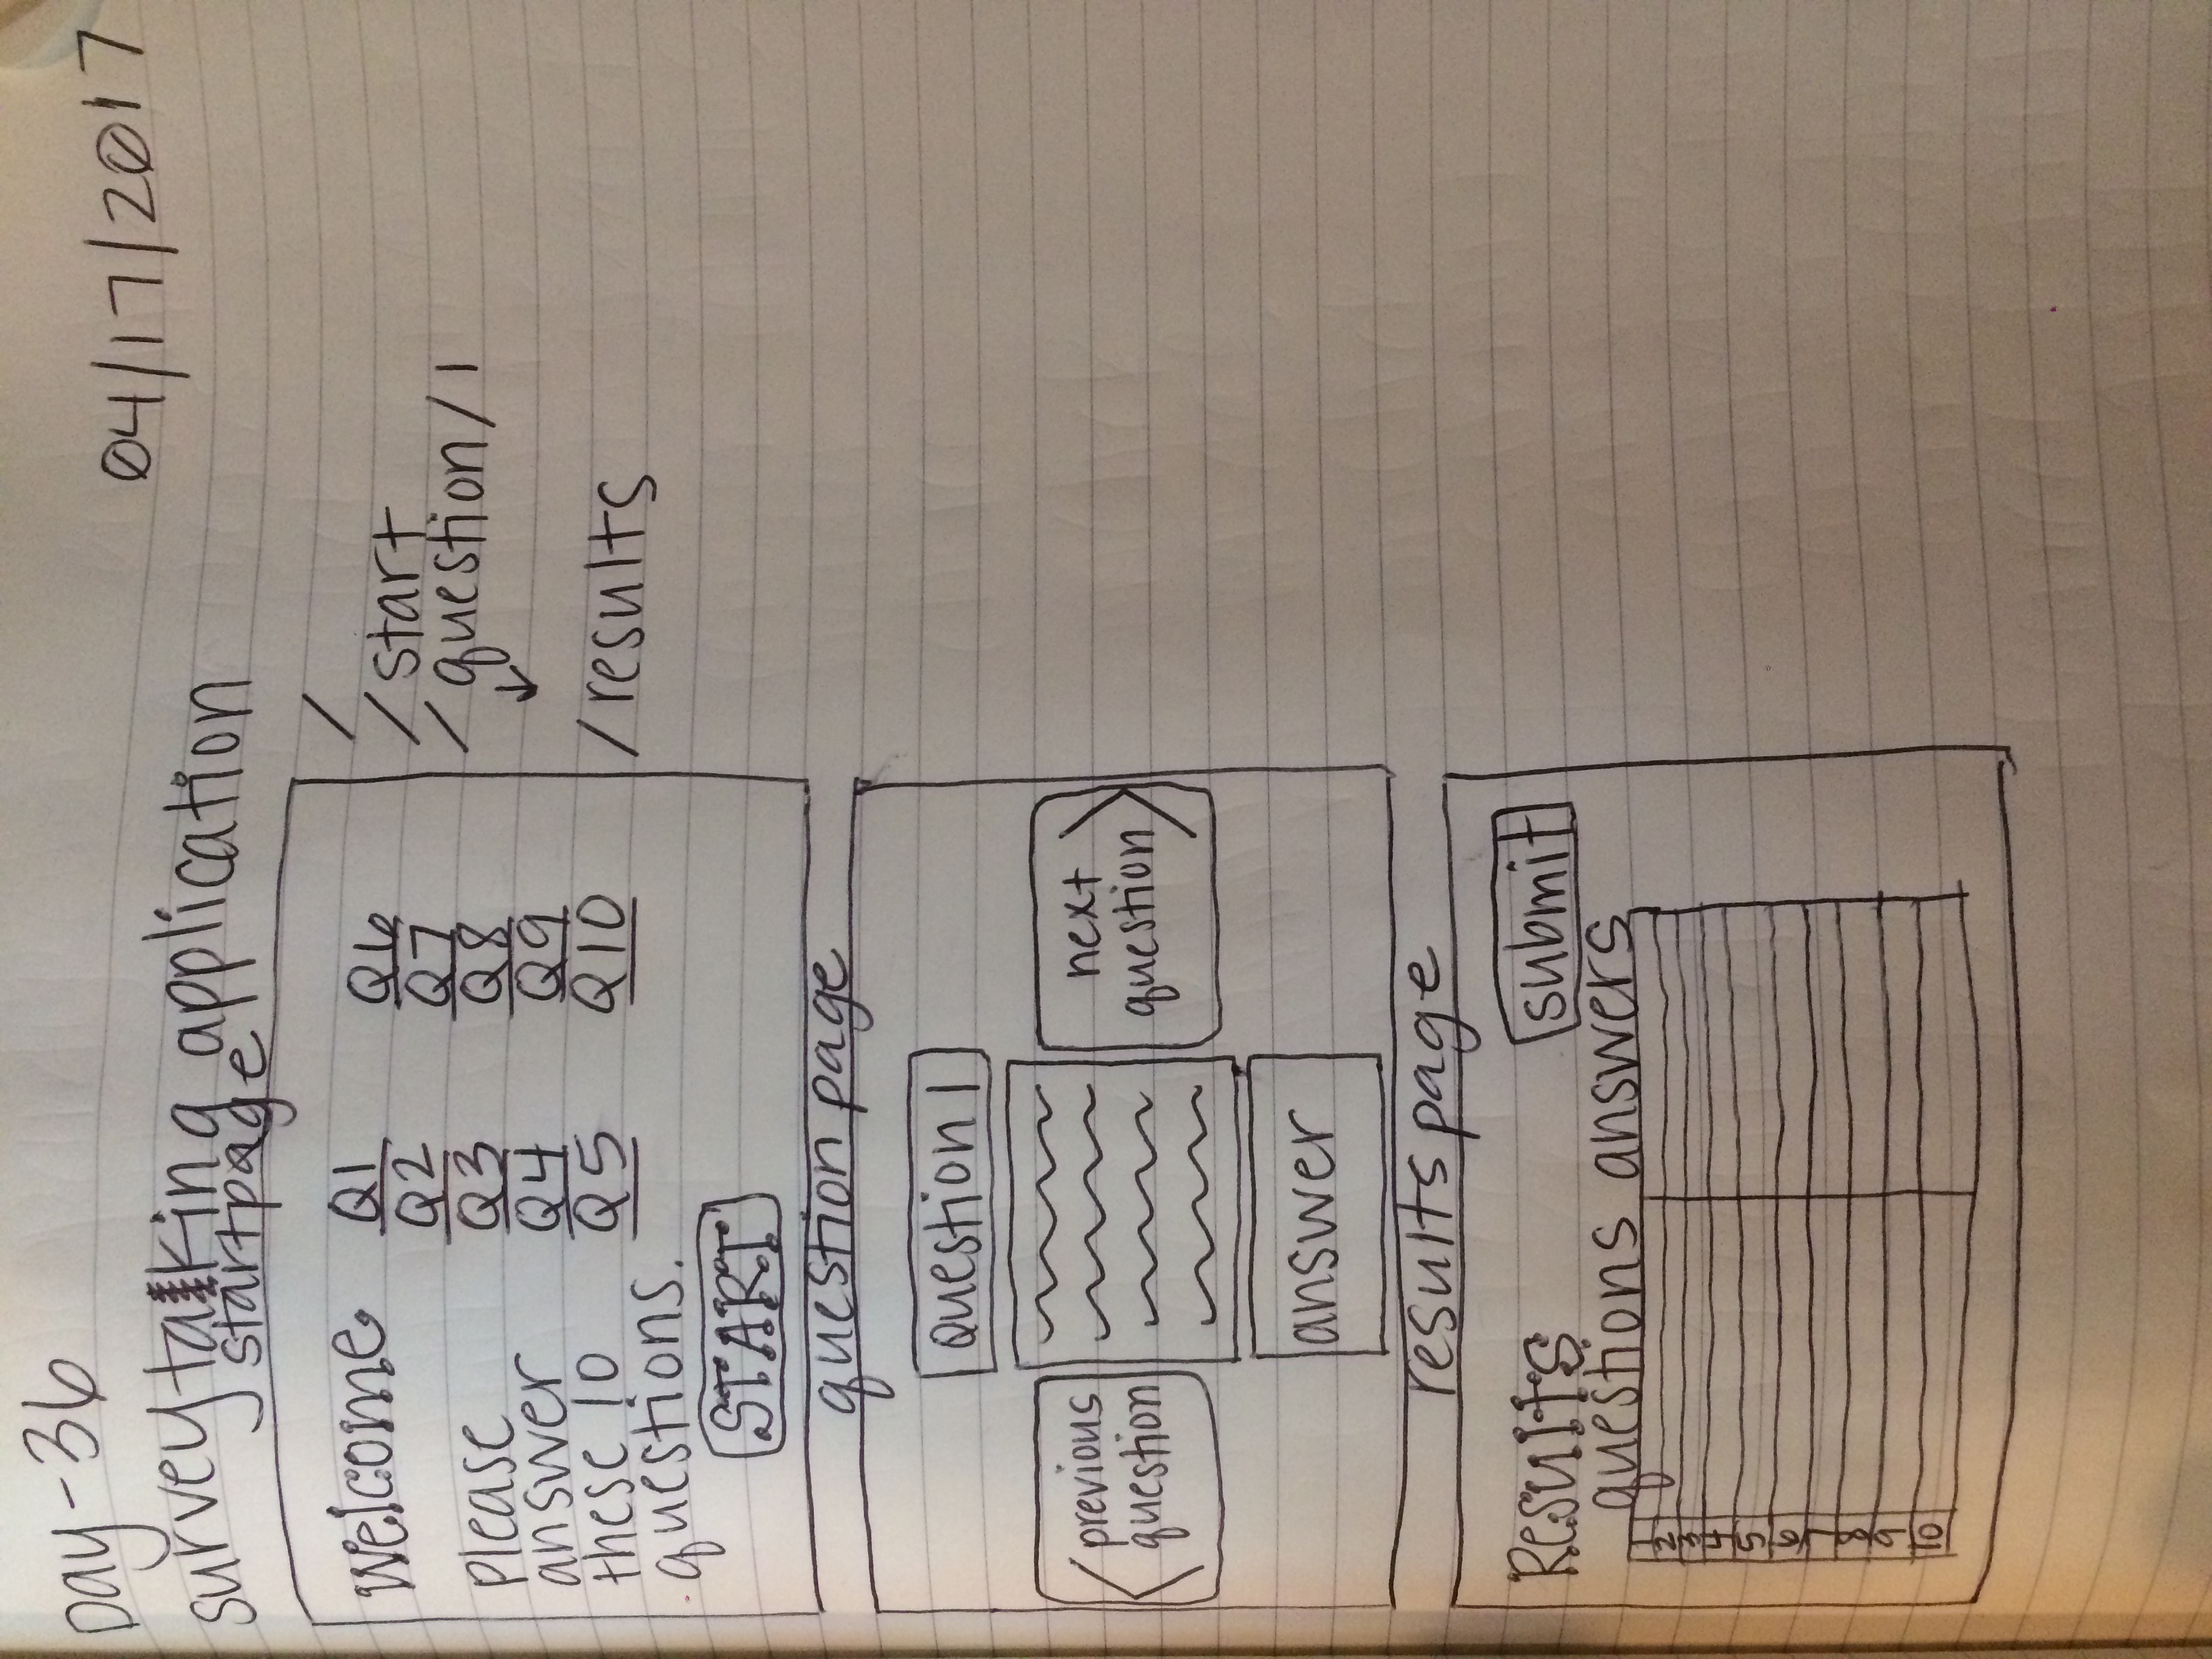 Day-36
04/17/2017
survey taking application
startpage
Welcome
please
answer
these 10
questions.
Q1
Q2
Q3
Q4
Q5
Q6
Q7
Q8
Q9
Q10
START
/
/start
/question/1
↓
/results
question page
Question 1
< previous
question
next >
question
answer
results page
Results
submit
questions answers
1
2
3
4
5
6
7
8
9
10